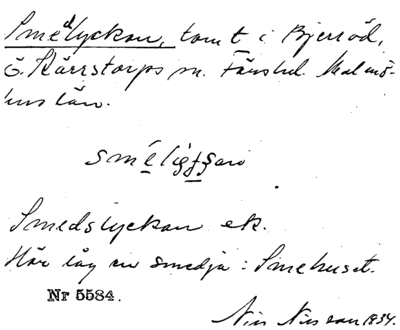 Smedlyckan, tomt i Bjerröd,
Ö. Kärrstorps sn. Färs hd. Malmö-
hus län.
Smedslyckan ek.
Här låg en smedja: Smehuset.
Nr 5584.
Nils Nilsson 1934.